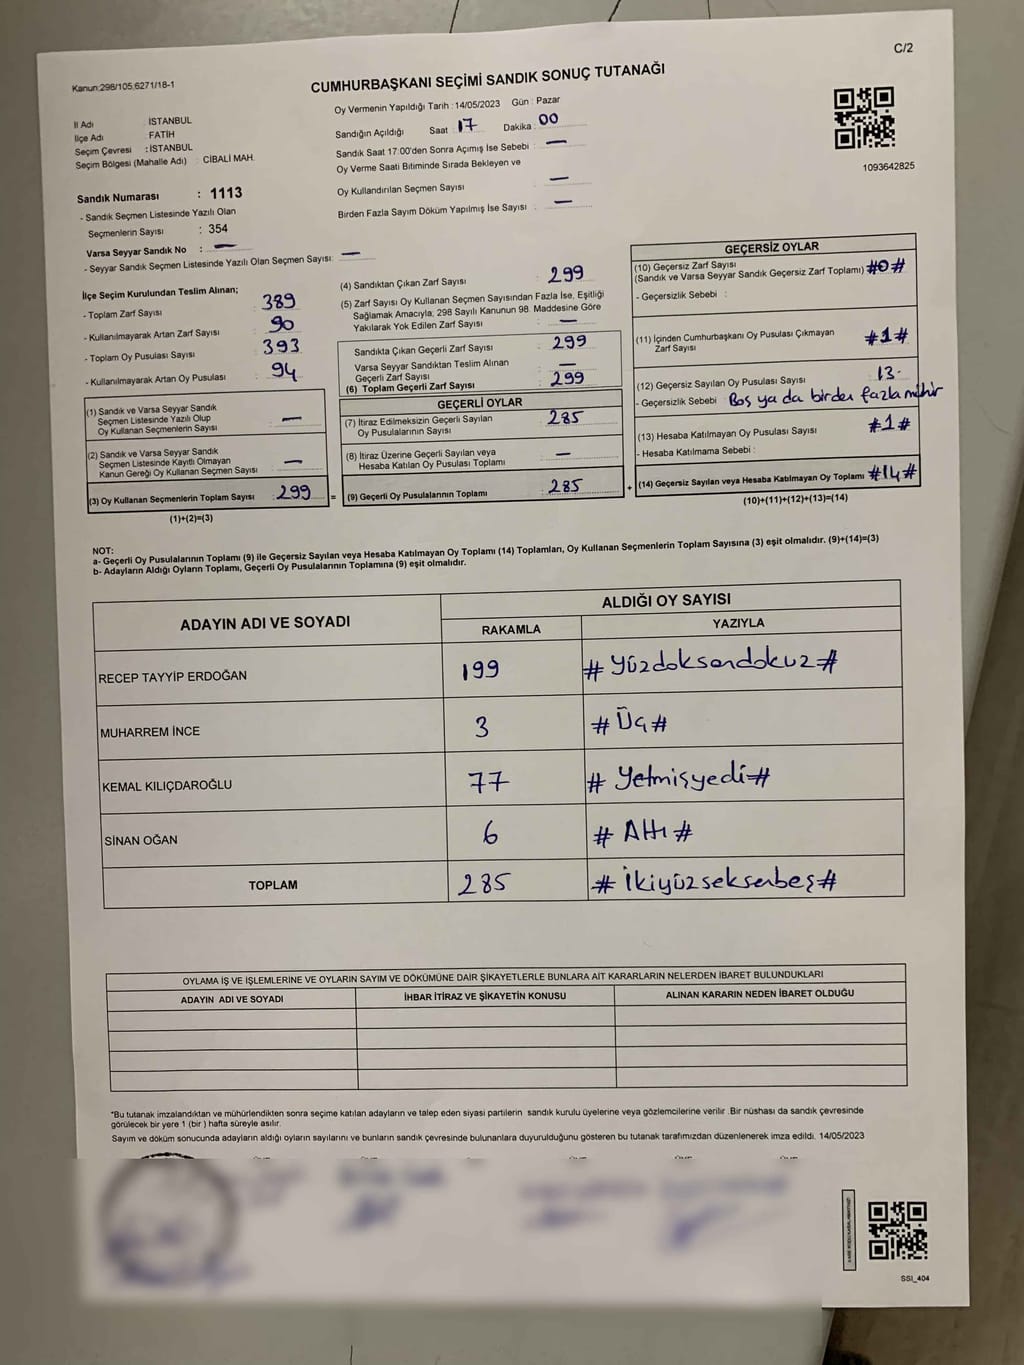 C/2
Kanun:298/105,6271/18-1
CUMHURBAŞKANI SEÇİMİ SANDIK SONUÇ TUTANAĞI
İl Adı İSTANBUL
İlçe Adı FATİH
Seçim Çevresi : İSTANBUL
Seçim Bölgesi (Mahalle Adı) : CİBALİ MAH.
Sandık Numarası : 1113
- Sandık Seçmen Listesinde Yazılı Olan
Seçmenlerin Sayısı : 354
Varsa Seyyar Sandık No : —
- Seyyar Sandık Seçmen Listesinde Yazılı Olan Seçmen Sayısı: —
Oy Vermenin Yapıldığı Tarih : 14/05/2023 Gün : Pazar
Sandığın Açıldığı Saat 17 Dakika 00
Sandık Saat 17:00'den Sonra Açımış İse Sebebi : —
Oy Verme Saati Bitiminde Sırada Bekleyen ve
Oy Kullandırılan Seçmen Sayısı —
Birden Fazla Sayım Döküm Yapılmış İse Sayısı : —
1093642825
İlçe Seçim Kurulundan Teslim Alınan;
- Toplam Zarf Sayısı : 389
- Kullanılmayarak Artan Zarf Sayısı : 90
- Toplam Oy Pusulası Sayısı : 393
- Kullanılmayarak Artan Oy Pusulası : 94
(1) Sandık ve Varsa Seyyar Sandık
Seçmen Listesinde Yazılı Olup
Oy Kullanan Seçmenlerin Sayısı —
(2) Sandık ve Varsa Seyyar Sandık
Seçmen Listesinde Kayıtlı Olmayan
Kanun Gereği Oy Kullanan Seçmen Sayısı —
(3) Oy Kullanan Seçmenlerin Toplam Sayısı : 299 =
(1)+(2)=(3)
(4) Sandıktan Çıkan Zarf Sayısı : 299
(5) Zarf Sayısı Oy Kullanan Seçmen Sayısından Fazla İse, Eşitliği
Sağlamak Amacıyla; 298 Sayılı Kanunun 98. Maddesine Göre
Yakılarak Yok Edilen Zarf Sayısı : —
Sandıkta Çıkan Geçerli Zarf Sayısı : 299
Varsa Seyyar Sandıktan Teslim Alınan
Geçerli Zarf Sayısı : —
(6) Toplam Geçerli Zarf Sayısı : 299
GEÇERLİ OYLAR
(7) İtiraz Edilmeksizin Geçerli Sayılan
Oy Pusulalarının Sayısı : 285
(8) İtiraz Üzerine Geçerli Sayılan veya
Hesaba Katılan Oy Pusulası Toplamı : —
(9) Geçerli Oy Pusulalarının Toplamı : 285 +
GEÇERSİZ OYLAR
(10) Geçersiz Zarf Sayısı
(Sandık ve Varsa Seyyar Sandık Geçersiz Zarf Toplamı) #0#
- Geçersizlik Sebebi :
(11) İçinden Cumhurbaşkanı Oy Pusulası Çıkmayan
Zarf Sayısı #1#
(12) Geçersiz Sayılan Oy Pusulası Sayısı 13-
- Geçersizlik Sebebi Boş ya da birden fazla mühür
(13) Hesaba Katılmayan Oy Pusulası Sayısı #1#
- Hesaba Katılmama Sebebi :
(14) Geçersiz Sayılan veya Hesaba Katılmayan Oy Toplamı #14#
(10)+(11)+(12)+(13)=(14)
NOT:
a- Geçerli Oy Pusulalarının Toplamı (9) ile Geçersiz Sayılan veya Hesaba Katılmayan Oy Toplamı (14) Toplamları, Oy Kullanan Seçmenlerin Toplam Sayısına (3) eşit olmalıdır. (9)+(14)=(3)
b- Adayların Aldığı Oyların Toplamı, Geçerli Oy Pusulalarının Toplamına (9) eşit olmalıdır.
ADAYIN ADI VE SOYADI ALDIĞI OY SAYISI
RAKAMLA YAZIYLA
RECEP TAYYİP ERDOĞAN 199 #Yüzdoksandokuz#
MUHARREM İNCE 3 #Üç#
KEMAL KILIÇDAROĞLU 77 #Yetmişyedi#
SİNAN OĞAN 6 #Altı#
TOPLAM 285 #İkiyüzseksenbeş#
OYLAMA İŞ VE İŞLEMLERİNE VE OYLARIN SAYIM VE DÖKÜMÜNE DAİR ŞİKAYETLERLE BUNLARA AİT KARARLARIN NELERDEN İBARET BULUNDUKLARI
ADAYIN ADI VE SOYADI İHBAR İTİRAZ VE ŞİKAYETİN KONUSU ALINAN KARARIN NEDEN İBARET OLDUĞU
*Bu tutanak imzalandıktan ve mühürlendikten sonra seçime katılan adayların ve talep eden siyasi partilerin sandık kurulu üyelerine veya gözlemcilerine verilir .Bir nüshası da sandık çevresinde
görülecek bir yere 1 (bir ) hafta süreyle asılır.
Sayım ve döküm sonucunda adayların aldığı oyların sayılarını ve bunların sandık çevresinde bulunanlara duyurulduğunu gösteren bu tutanak tarafımızdan düzenlenerek imza edildi. 14/05/2023
SSI_404